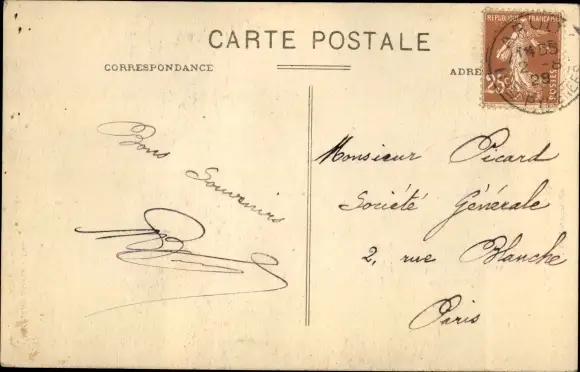 CARTE POSTALE
CORRESPONDANCE
ADRE
REPUBLIQUE FRANÇAISE
25c
POSTES
14 55
2 - 8
29
Bons
Souvenirs
Monsieur Picard
Société Générale
2, rue Blanche
Paris